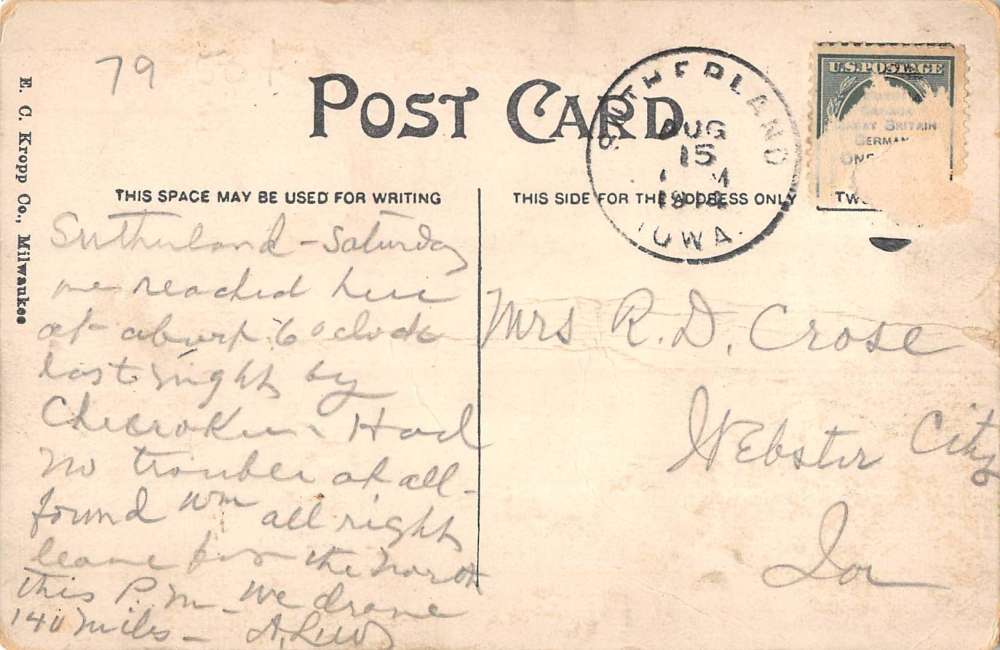 79
E. C. Kropp Co., Milwaukee
POST CARD
SUTHERLAND
AUG
15
M
1914
IOWA.
U.S.POSTAGE
GREAT BRITAIN
GERMAN
ONE
TWO
THIS SPACE MAY BE USED FOR WRITING
THIS SIDE FOR THE ADDRESS ONLY
Sutherland - Saturday
we reached here
at about 6 oclock
last night by
Cherokee - Had
no trouble at all -
found Wm all right
leave for the North
this P.M - We drove
140 miles -
Mrs R. D. Crose
Webster City
Ia